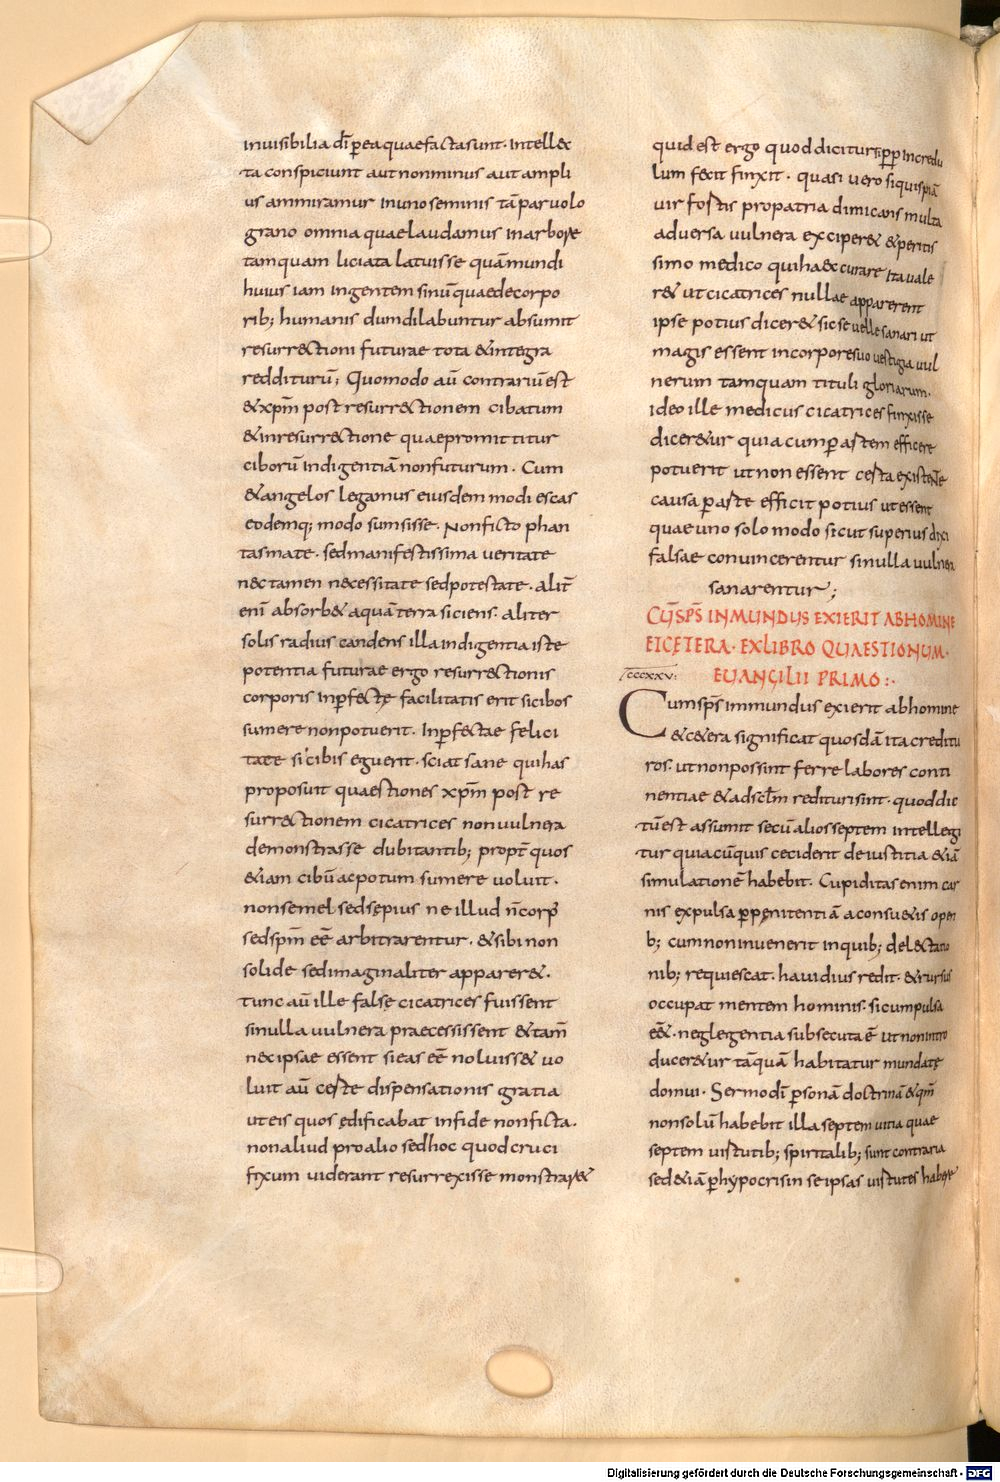 inuisibilia di͞ ꝑea quae facta sunt. Intellec
ta conspiciunt aut non minus aut ampli
us ammiramur in uno seminis tā paruolo
grano omnia quae laudamus in arbore
tamquam liciata latuisse quā mundi
huius iam ingentem sinū quae decorpo
rib; humanis dum dilabuntur absumit
resurrectioni futurae tota & integra
redditurū; Quomodo aū contrariū est
& xp̄m post resurrectionem cibatum
& in resurrectione quae promittitur
ciborū indigentiā non futurum. Cum
& angelos legamus eiusdem modi escas
eodemq; modo sumsisse. Non ficto phan
tasmate. sed manifestissima ueritate
nec tamen necessitate sed potestate. alit̄
enī absorb& aquā terra sitiens. aliter
solis radius candens illa indigentia iste
potentia futurae ergo resurrectionis
corporis inꝑfectę facilitatis erit si cibos
sumere non potuerit. Inꝑfectae felici
taete si cibis eguerit. sciat sane qui has
proposuit quaestiones xp̄m post re
surrectionem cicatrices non uulnera
demonstrasse dubitantib; propt̄ quos
&iam cibū ac potum sumere uoluit.
non semel sed sępius ne illud n̄ corp̄
sed sp̄m eē arbitrarentur. & sibi non
solide sed imaginaliter apparer&.
tunc aū ille falsę cicatrices fuissent
si nulla uulnera praecessissent & tam̄
nec ipsae essent si eas eē noluiss& uo
luit aū certe dispensationis gratia
ut eis quos ędificabat in fide non ficta.
non aliud pro alio sed hoc quod cruci
fixum uiderant resurrexisse monstrar&
quid est ergo quod dicitur si ꝑp incredu
lum fecit finxit. quasi uero si quispiā
uir fortis pro patria dimicans multa
aduersa uulnera exciper& & peritis
simo medico qui haec curare ita uale
r& ut cicatrices nullae apparerent
ipse potius dicer& sic se uelle sanari ut
magis essent in corpore suo uestigia uul
nerum tamquam tituli gloriarum.
ideo ille medicus cicatrices finxisse
dicer&ur quia cum ꝑ artem efficere
potuerit ut non essent certa existente
causa ꝑ arte efficit potius ut essent
quae uno solo modo sicut superius dixi
falsae conuincerentur si nulla uulnera
sanarentur;
CŪ SP̄S INMUNDUS EXIERIT AB HOMINE
ET CĘTERA. EX LIBRO QUAESTIONUM.
EUANGILII PRIMO:.
CCCXXV:
Cum sp̄s immundus exierit ab homine
& c&era significat quosdā ita creditu
ros. ut non possint ferre labores conti
nentiae & ad scl̄m redituri sint. quod dic
tū est assumit secū alios septem intellegi
tur quia cū quis ceciderit de iustitia &iā
simulationē habebit. Cupiditas enim car
nis expulsa ꝑ pęnitentiā a consu&is oper
b; cum non inuenerit in quib; delectatio
nib; requiescat. hauidius redit. & rursus
occupat mentem hominis. si cum pulsa
eē&. neglegentia subsecuta ē ut non intro
ducer&ur tāquā habitatur mundatę
domui. Sermo di͞ ꝑsonā doctrinā & qm̄
non solū habebit illa septem uitia quae
septem uirtutib; spiritalib; sunt contraria
sed &iā ꝑ hypocrisin se ipsas uirtutes habere
Digitalisierung gefördert durch die Deutsche Forschungsgemeinschaft - DFG